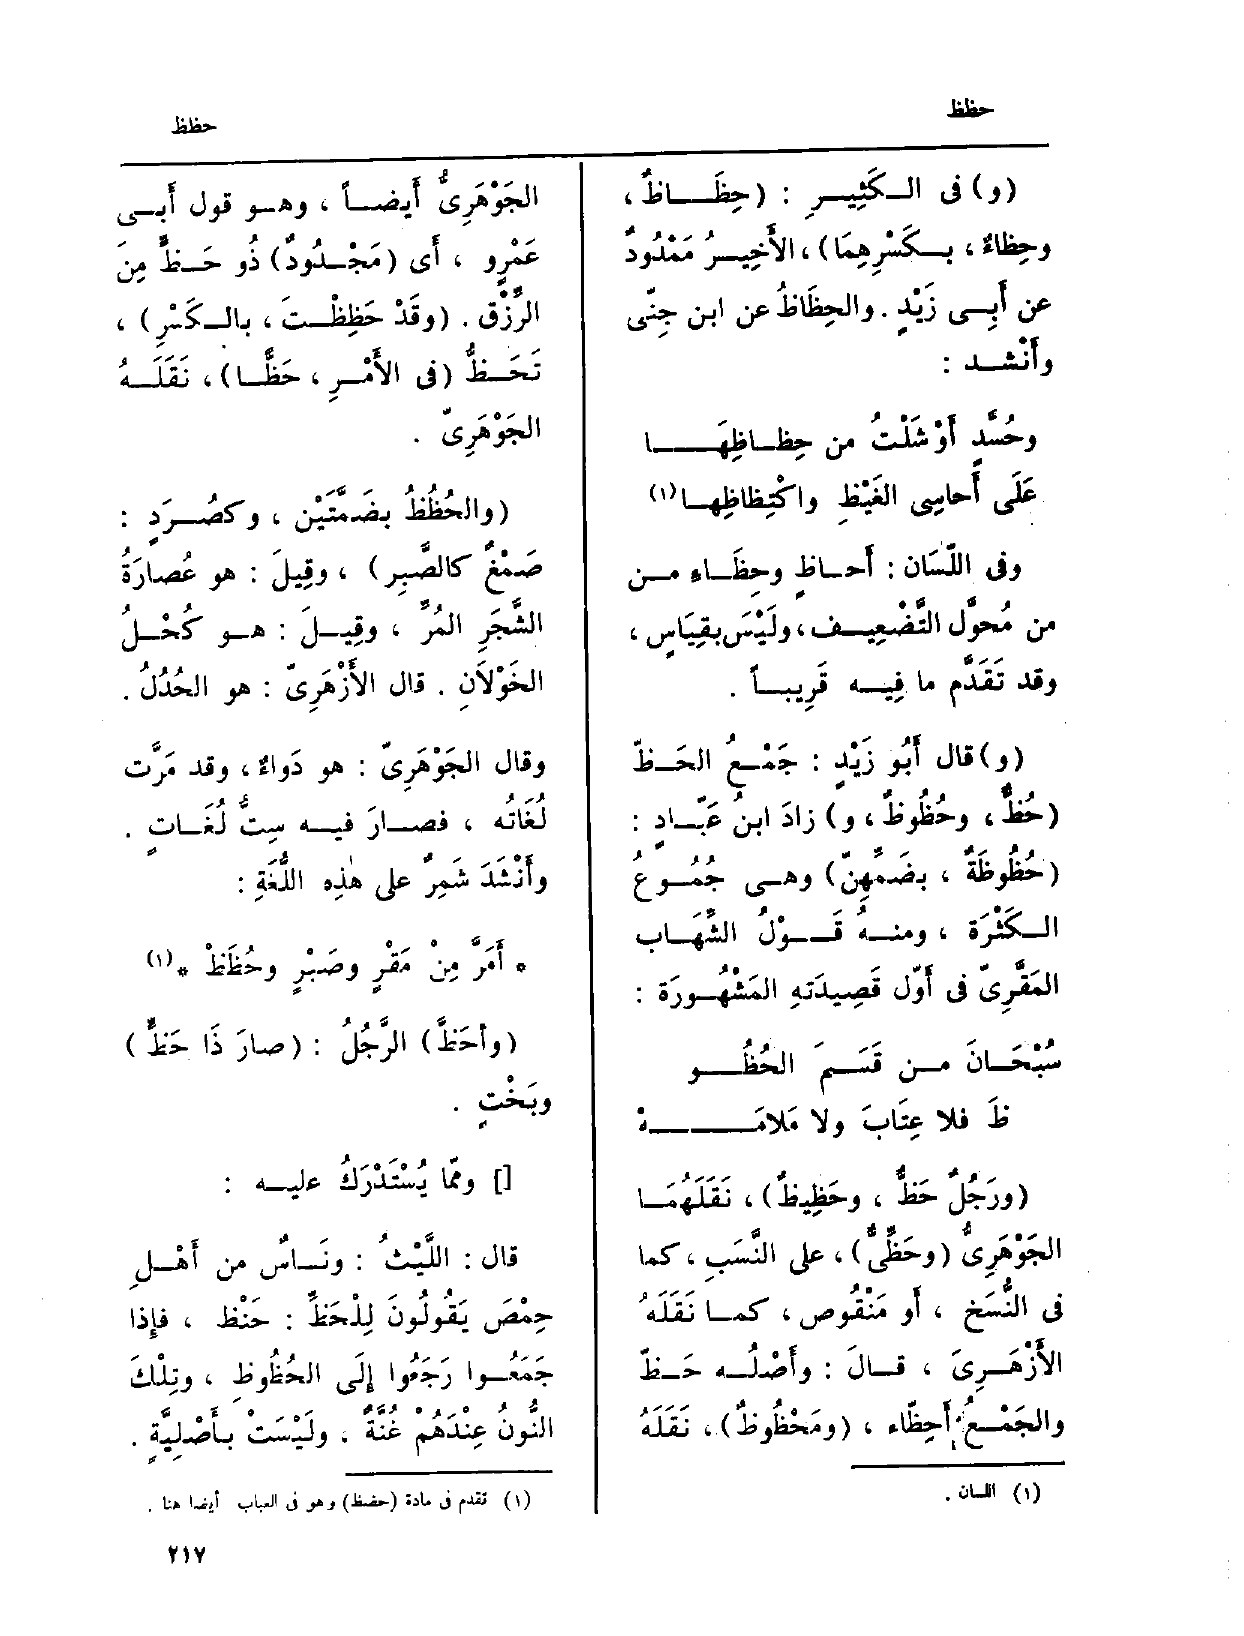 حظظ
حظظ
(و) فى الكَثِيرِ : (حِظَاظٌ ،
وحِظاءٌ ، بكَسْرِهِمَا) ، الأَخِيرُ مَمْدُودٌ
عن أَبِى زَيْدٍ . والحِظَاظُ عن ابن جِنِّى
وأَنْشد :
وحُسَّدٍ أَوْشَلْتُ من حِظاظِهَا
عَلَى أَحاسِى الغَيْظِ واكْتِظاظِها (١)
وفى اللّسَان : أَحاظٍ وحِظَاء من
من مُحَوَّل التَّضْعِيف ، ولَيْسَ بقِيَاسٍ ،
وقد تَقَدَّم ما فِيه قَرِيباً .
(و) قال أَبُو زَيْدٍ : جَمْعُ الحَظّ
(حُظٌّ ، وحُظُوظٌ ، و) زادَ ابنُ عَبّادٍ :
(حُظُوظَةٌ ، بضَمِّهِنّ) وهى جُمُوعُ
الكَثْرَة ، ومنهُ قَوْلُ الشِّهَاب
المَقَّرِىّ فى أَوّل قَصِيدَتهِ المَشْهُورَة :
سُبْحَانَ من قَسَمَ الحُظُو
ظَ فلا عِتَابَ ولا مَلامَهْ
(ورَجُلٌ حَظٌّ ، وحَظِيظٌ) ، نَقَلَهُمَا
الجَوْهَرِىُّ (وحَظِّىٌّ) ، على النَّسَبِ ، كما
فى النُّسَخ ، أَو مَنْقُوص ، كما نَقَلَهُ
الأَزْهَرِىّ ، قالَ : وأَصْلُه حَظّ
والجَمْعُ أَحِظّاء ، (ومَحْظُوظٌ) ، نَقَلَهُ
(١) اللسان .
الجَوْهَرِىُّ أَيضاً ، وهو قول أَبى
عَمْرٍو ، أَى (مَجْدُودٌ) ذُو حَظٍّ مِنَ
الرِّزْقِ . (وقَدْ حَظِظْتَ ، بالكَسْرِ) ،
تَحَظُّ (فى الأَمْرِ ، حَظًّا) ، نَقَلَهُ
الجَوْهَرِىّ .
(والحُظُظُ بضَمَّتَيْن ، وكصُرَدٍ :
صَمْغٌ كالصَّبِر) ، وقِيلَ : هو عُصارَةُ
الشَّجَرِ المُرِّ ، وقِيلَ : هو كُحْلُ
الخَوْلَانِ . قال الأَزْهَرِىّ : هو الحُدُلُ .
وقال الجَوْهَرِىّ : هو دَواءٌ ، وقد مَرَّت
لُغَاتُه ، فصارَ فيه سِتُّ لُغَاتٍ .
وأَنْشَدَ شَمِرٌ على هٰذِه اللُّغَةِ :
* أَمَرَّ مِنْ مَقْرٍ وصَبْرٍ وحُظَظْ * (١)
(وأَحَظَّ) الرَّجُلُ : (صارَ ذَا حَظٍّ)
وبَخْتٍ .
[] وممّا يُسْتَدْرَكُ عليه :
قال : اللَّيْثُ : ونَاسٌ من أَهْلِ
حِمْصَ يَقُولُونَ لِلْحَظِّ : حَنْظ ، فإِذا
جَمَعُوا رَجَعُوا إِلَى الحُظُوظِ ، وتِلْكَ
النُّونُ عِنْدَهُمْ غُنَّةٌ ، ولَيْسَتْ بأَصْلِيَّةٍ .
(١) تقدم فى مادة (حفظ) وهو فى العباب أيضا هنا .
٢١٧